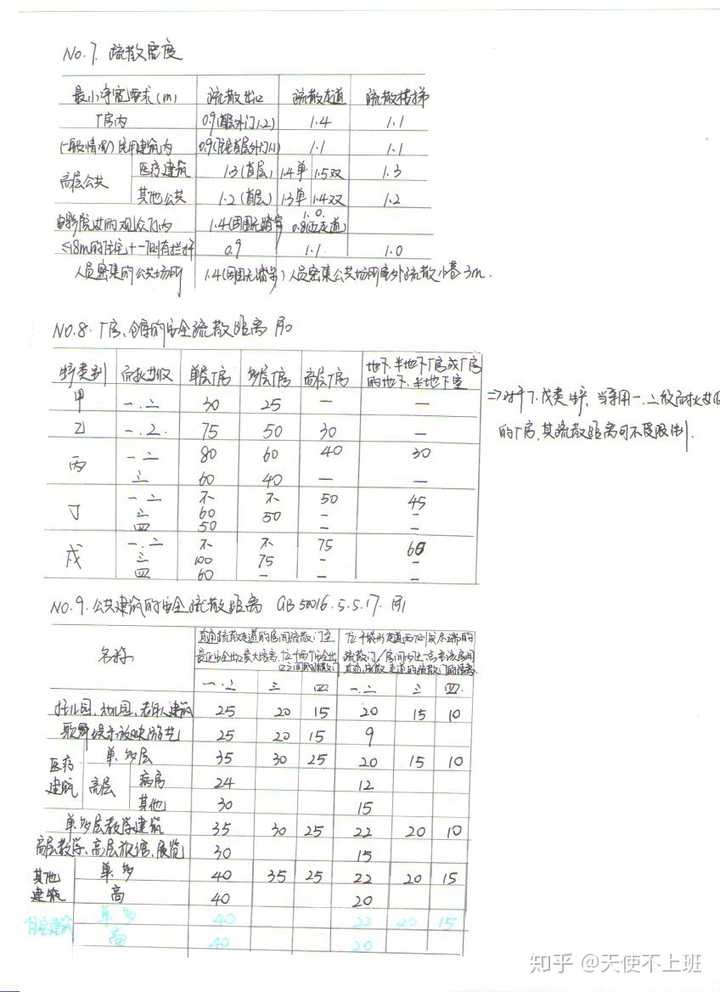 No.7. 疏散宽度
最小净宽要求(m) 疏散出口 疏散走道 疏散楼梯
厂房内 0.9(首层外门1.2) 1.4 1.1
(一般情况)民用建筑内 0.9(住宅首层外门1.1) 1.1 1.1
高层公共 医疗建筑 1.3(首层) 1.4单 1.5双 1.3
其他公共 1.2(首层) 1.3单 1.4双 1.2
观众厅内 1.4(内外无踏步) 1.0 0.8(边走道)
≤18m的住宅 一边有栏杆 0.9 1.1 1.0
人员密集的公共场所 1.4(内外无踏步) 人员密集公共场所室外疏散小巷 3m.
NO.8. 厂房、仓库的安全疏散距离
类别 耐火等级 单层厂房 多层厂房 高层厂房 地下、半地下厂房或厂房的地下、半地下室
甲 一.二 30 25 — —
乙 一.二. 75 50 30 —
丙 一.二 80 60 40 30
三 60 40 — —
丁 一.二 不 不 50 45
三 60 50 — —
四 50 — —
戊 一.二 不 不 75 60
三 100 75 — —
四 60 — — —
⇒对于丁.戊类 当采用一.二级耐火
的厂房,其疏散距离可不受限制.
NO.9. 公共建筑的安全疏散距离 GB 50016. 5.5.17.
名称 直通疏散走道的房间疏散门至最近安全出口最大距离 位于两个安全出口之间的疏散门 位于袋形走道两侧或尽端的疏散门
一.二 三 四 一.二 三 四
托儿园、幼儿园、老年人建筑 25 20 15 20 15 10
歌舞娱乐放映游艺 25 20 15 9
医疗建筑 单.多层 35 30 25 20 15 10
高层 病房 24 12
其他 30 15
单.多层教学建筑 35 30 25 22 20 10
高层教学、高层旅馆、展览 30 15
其他建筑 单.多 40 35 25 22 20 15
高 40 20
住宅建筑 单.多 40 22 20 15
高 40 20
知乎 @天使不上班